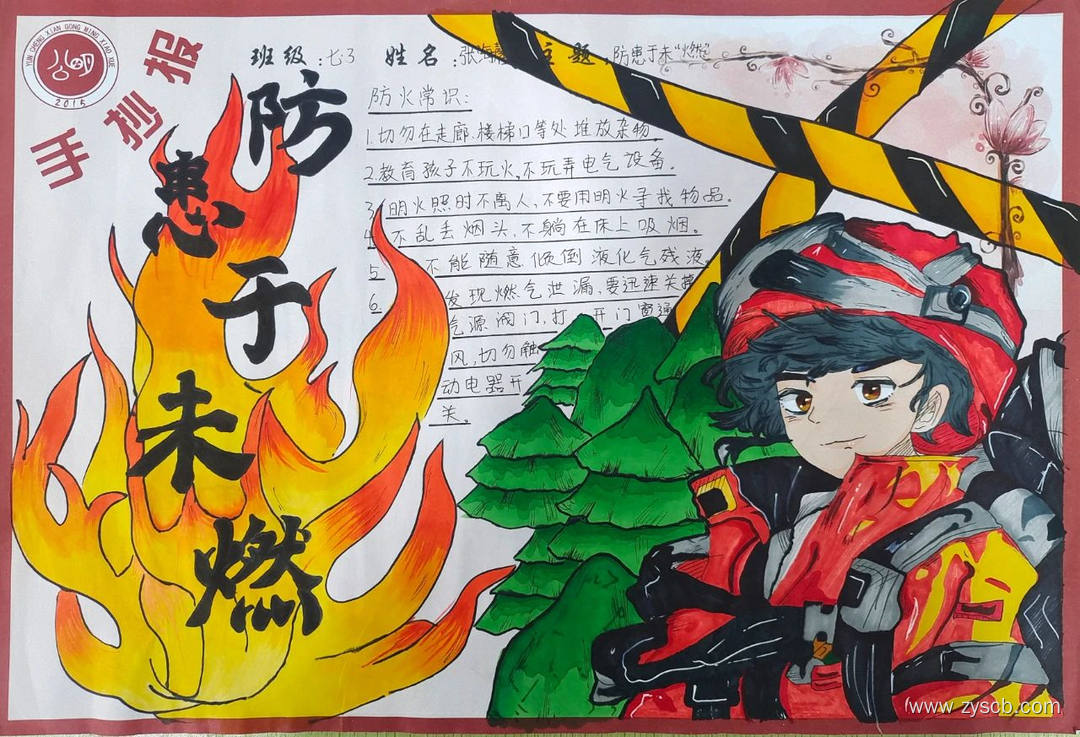 YUN CHENG XIAN GONG MING XIAO XUE
公明
2015
手抄报
班级:七3 姓名:张海 主题:防患于未“燃”
防患于未燃
防火常识:
1.切勿在走廊、楼梯口等处堆放杂物
2.教育孩子不玩火,不玩弄电气设备。
3.明火照时不离人,不要用明火寻找物品。
4.不乱丢烟头,不躺在床上吸烟。
5 不能随意倾倒液化气残液。
6.发现燃气泄漏,要迅速关
气源阀门,打开门窗通
风,切勿触
动电器开
关。
www.zyscb.com